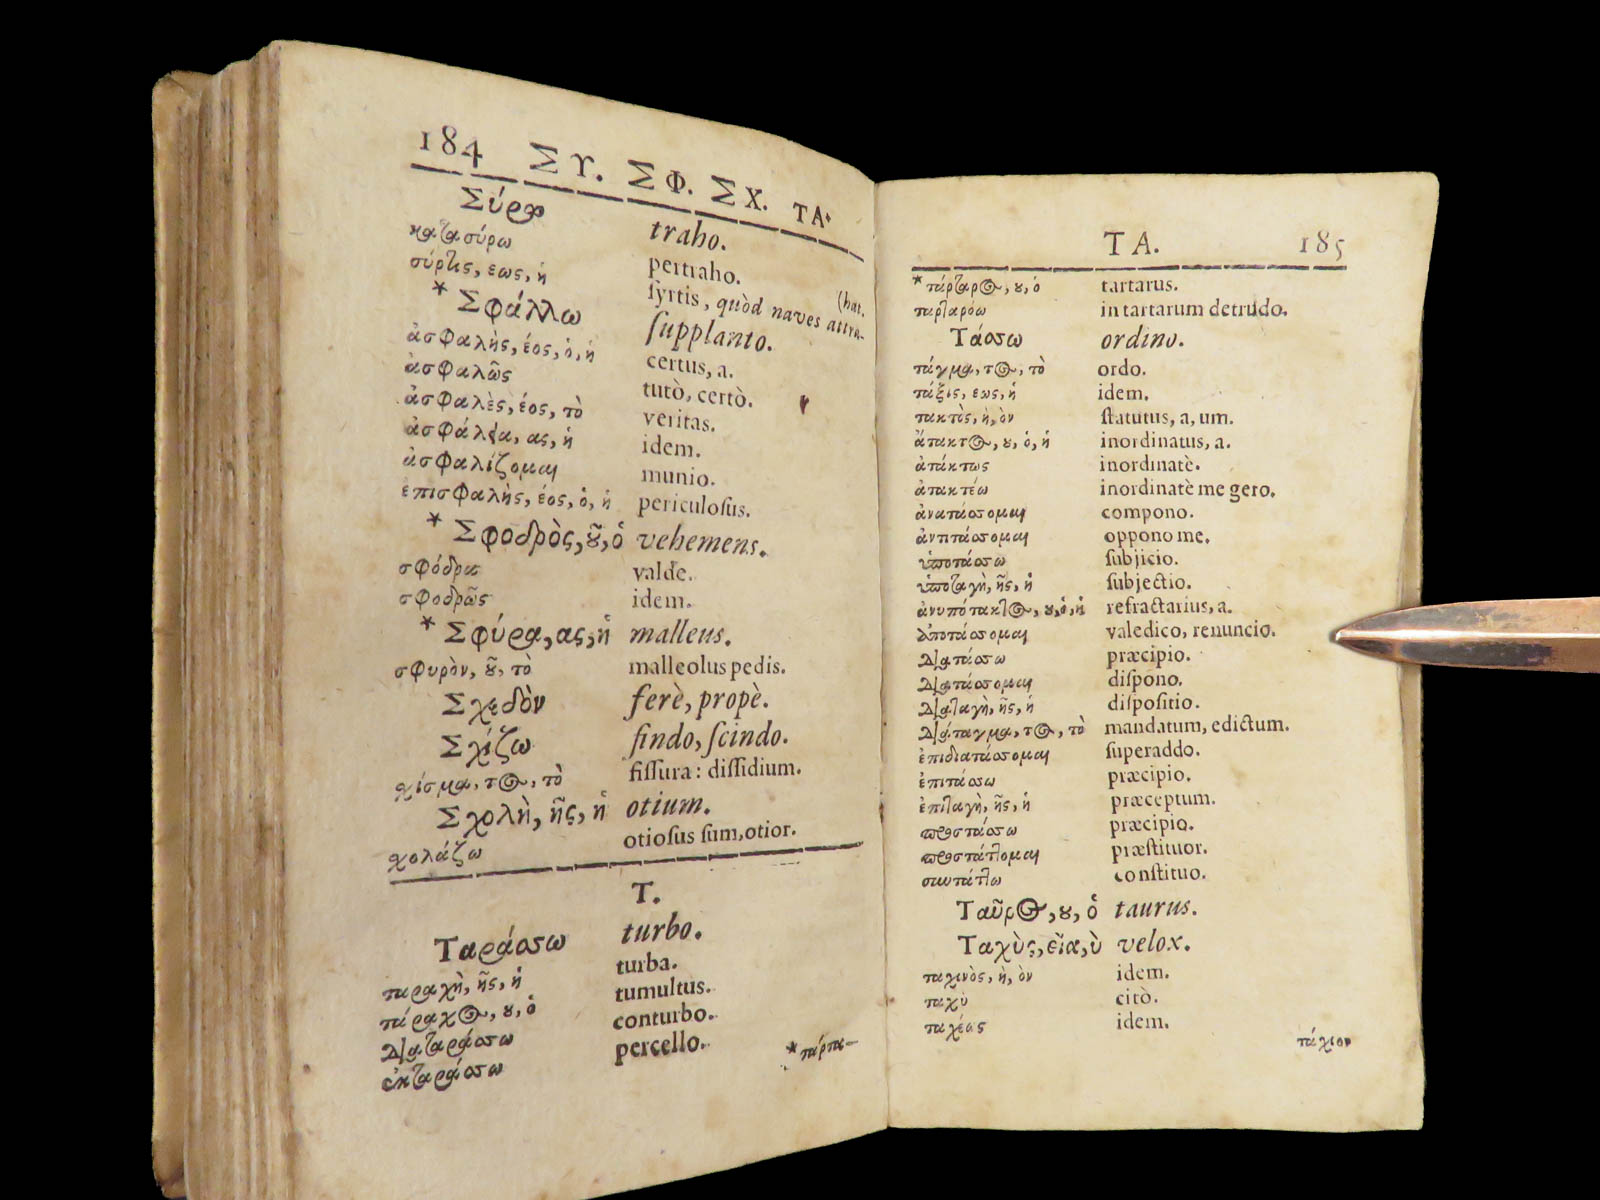 184 ΣΥ. ΣΦ. ΣΧ. ΤΑ.
Σύρω traho.
κατασύρω pertraho.
σύρτις, εως, ἡ ſyrtis, quòd naves attra- (hat.
* Σφάλλω ſupplanto.
ἀσφαλὴς, έος, ὁ, ἡ certus, a.
ἀσφαλῶς tutò, certò.
ἀσφαλὲς, έος, τὸ veritas.
ἀσφάλεια, ας, ἡ idem.
ἀσφαλίζομαι munio.
ἐπισφαλὴς, έος, ὁ, ἡ periculoſus.
* Σφοδρὸς, οῦ, ὁ vehemens.
σφόδρα valde.
σφοδρῶς idem.
* Σφύρα, ας, ἡ malleus.
σφυρὸν, οῦ, τὸ malleolus pedis.
Σχεδὸν ferè, propè.
Σχίζω findo, ſcindo.
χίσμα, τος, τὸ fiſſura: diſſidium.
Σχολὴ, ῆς, ἡ otium.
χολάζω otioſus ſum, otior.
T.
Ταράσσω turbo.
ταραχὴ, ῆς, ἡ turba.
τάραχος, ου, ὁ tumultus.
διαταράσσω conturbo.
ἐκταράσσω percello.
* τάρτα-
ΤΑ. 185
* τάρταρος, ου, ὁ tartarus.
ταρταρόω in tartarum detrudo.
Τάσσω ordino.
τάγμα, τος, τὸ ordo.
τάξις, εως, ἡ idem.
τακτὸς, ὴ, ὸν ſtatutus, a, um.
ἄτακτος, ου, ὁ, ἡ inordinatus, a.
ἀτάκτως inordinatè.
ἀτακτέω inordinatè me gero.
ἀνατάσσομαι compono.
ἀντιτάσσομαι oppono me.
ὑποτάσσω ſubjicio.
ὑποταγὴ, ῆς, ἡ ſubjectio.
ἀνυπότακτος, ου, ὁ, ἡ refractarius, a.
ἀποτάσσομαι valedico, renuncio.
διατάσσω præcipio.
διατάσσομαι diſpono.
διαταγὴ, ῆς, ἡ diſpoſitio.
διάταγμα, τος, τὸ mandatum, edictum.
ἐπιδιατάσσομαι ſuperaddo.
ἐπιτάσσω præcipio.
ἐπιταγὴ, ῆς, ἡ præceptum.
προστάσσω præcipio.
προστάττομαι præſtituor.
συντάττω conſtituo.
Ταῦρος, ου, ὁ taurus.
Ταχὺς, εῖα, ὺ velox.
ταχινὸς, ὴ, ὸν idem.
ταχὺ citò.
ταχέως idem.
τάχιον